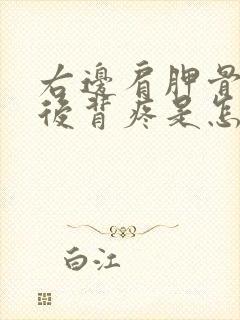 右邊肩胛骨
後背疼是怎
白江